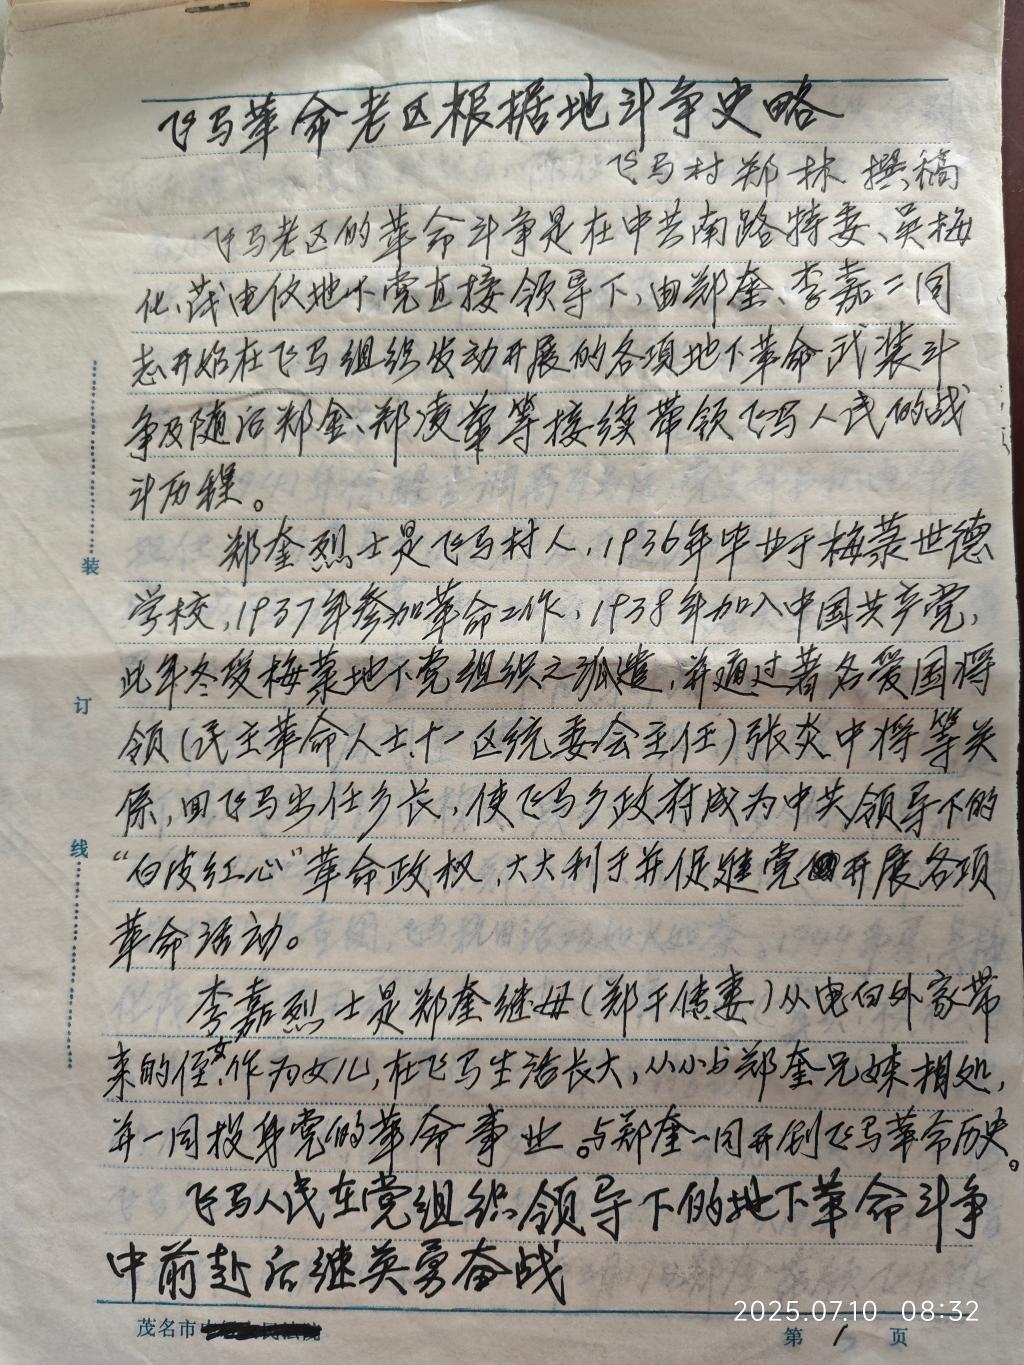 飞马革命老区根据地斗争史略
飞马村郑林 撰稿
飞马老区的革命斗争是在中共南路特委、吴梅
化、茂电伩地下党直接领导下,由郑奎、李嘉二同
志开始在飞马组织发动开展的各项地下革命武装斗
争及随后郑金、郑凌华等接续带领飞马人民的战
斗历程。
郑奎烈士是飞马村人,1936年毕业于梅菉世德
学校,1937年参加革命工作,1938年加入中国共产党,
此年冬受梅菉地下党组织之派遣,并通过著名爱国将
领(民主革命人士十一区统委会主任)张炎中将等关
系,回飞马出任乡长,使飞马乡政府成为中共领导下的
“白皮红心”革命政权,大大利于并促进党开展各项
革命活动。
李嘉烈士是郑奎继母(郑干传妻)从电白外家带
来的侄女,作为女儿,在飞马生活长大,从小与郑奎兄妹相处,
并一同投身党的革命事业。与郑奎一同开创飞马革命历史。
飞马人民在党组织领导下的地下革命斗争
中前赴后继英勇奋战
装
订
线
茂名市
第1页
2025.07.10 08:32